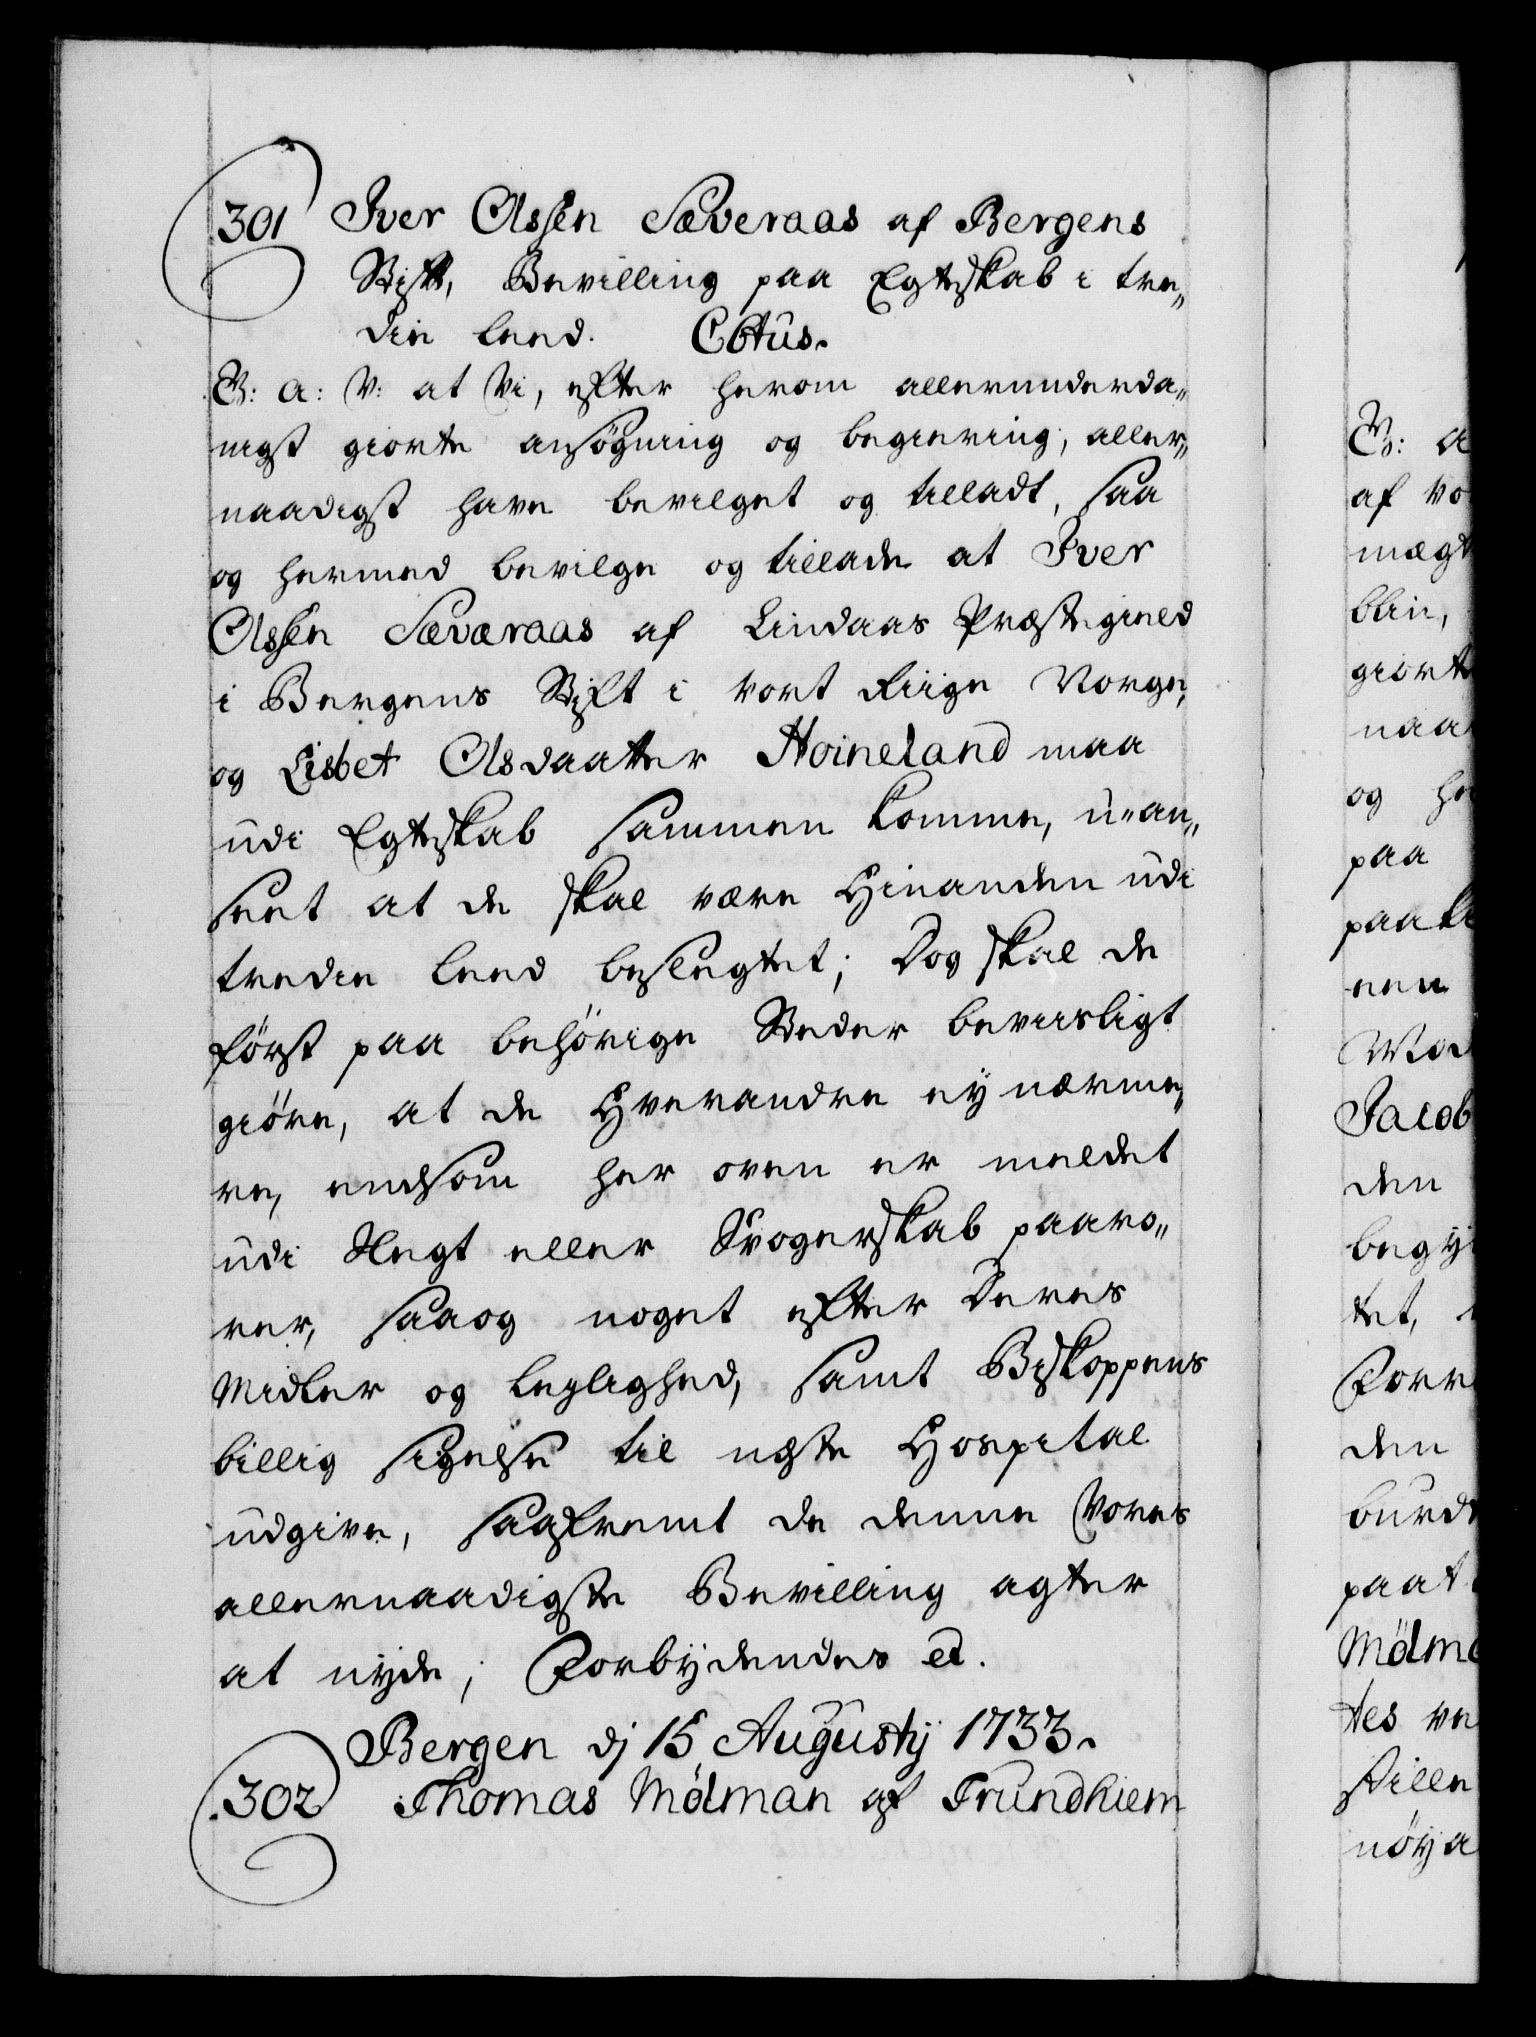 301 Iver Olssen Sæveraas af Bergens
Stift, Bevilling paa Egteskab i tre„
die leed. Cbtus.
G: A: V: at Vi, efter herom allerunderda„
nigst giorte ansøgning og begiering, aller„
naadigst have bevilget og tilladt, saa
og hermed bevilge og tillade at Iver
Olssen Sæværaas af Lindaas Præstegield
i Bergens Stift i vort Riige Norge,
og Lisbet Olsdaatter Hoineland maa
udi Egteskab sammen komme, u-an„
seet at de skal være Hinanden udi
tredie leed beslegtet; Dog skal de
først paa behørige Steder beviisligt
giøre, at de Hverandre ey nærme„
re, end som her oven er meldet
udi Slegt eller Svogerskab paarø„
rer, saa og noget efter Deres
Midler og leylighed, samt Biskoppens
billig sigelse til neste Hospital
udgive, saafremt de denne Vores
allernaadigste Bevilling agter
at nyde; Forbydendes etc.
Bergen dj 15 Augustij 1733.
302 Thomas Mölman af Trundhiem
G: A
af vo
mægt
blin,
giort
naa
og he
paa
paa
een
Mod
Jacob
den
begy
tet,
Forr
den
burde
paat
Mölma
tes ve
stille
nöya